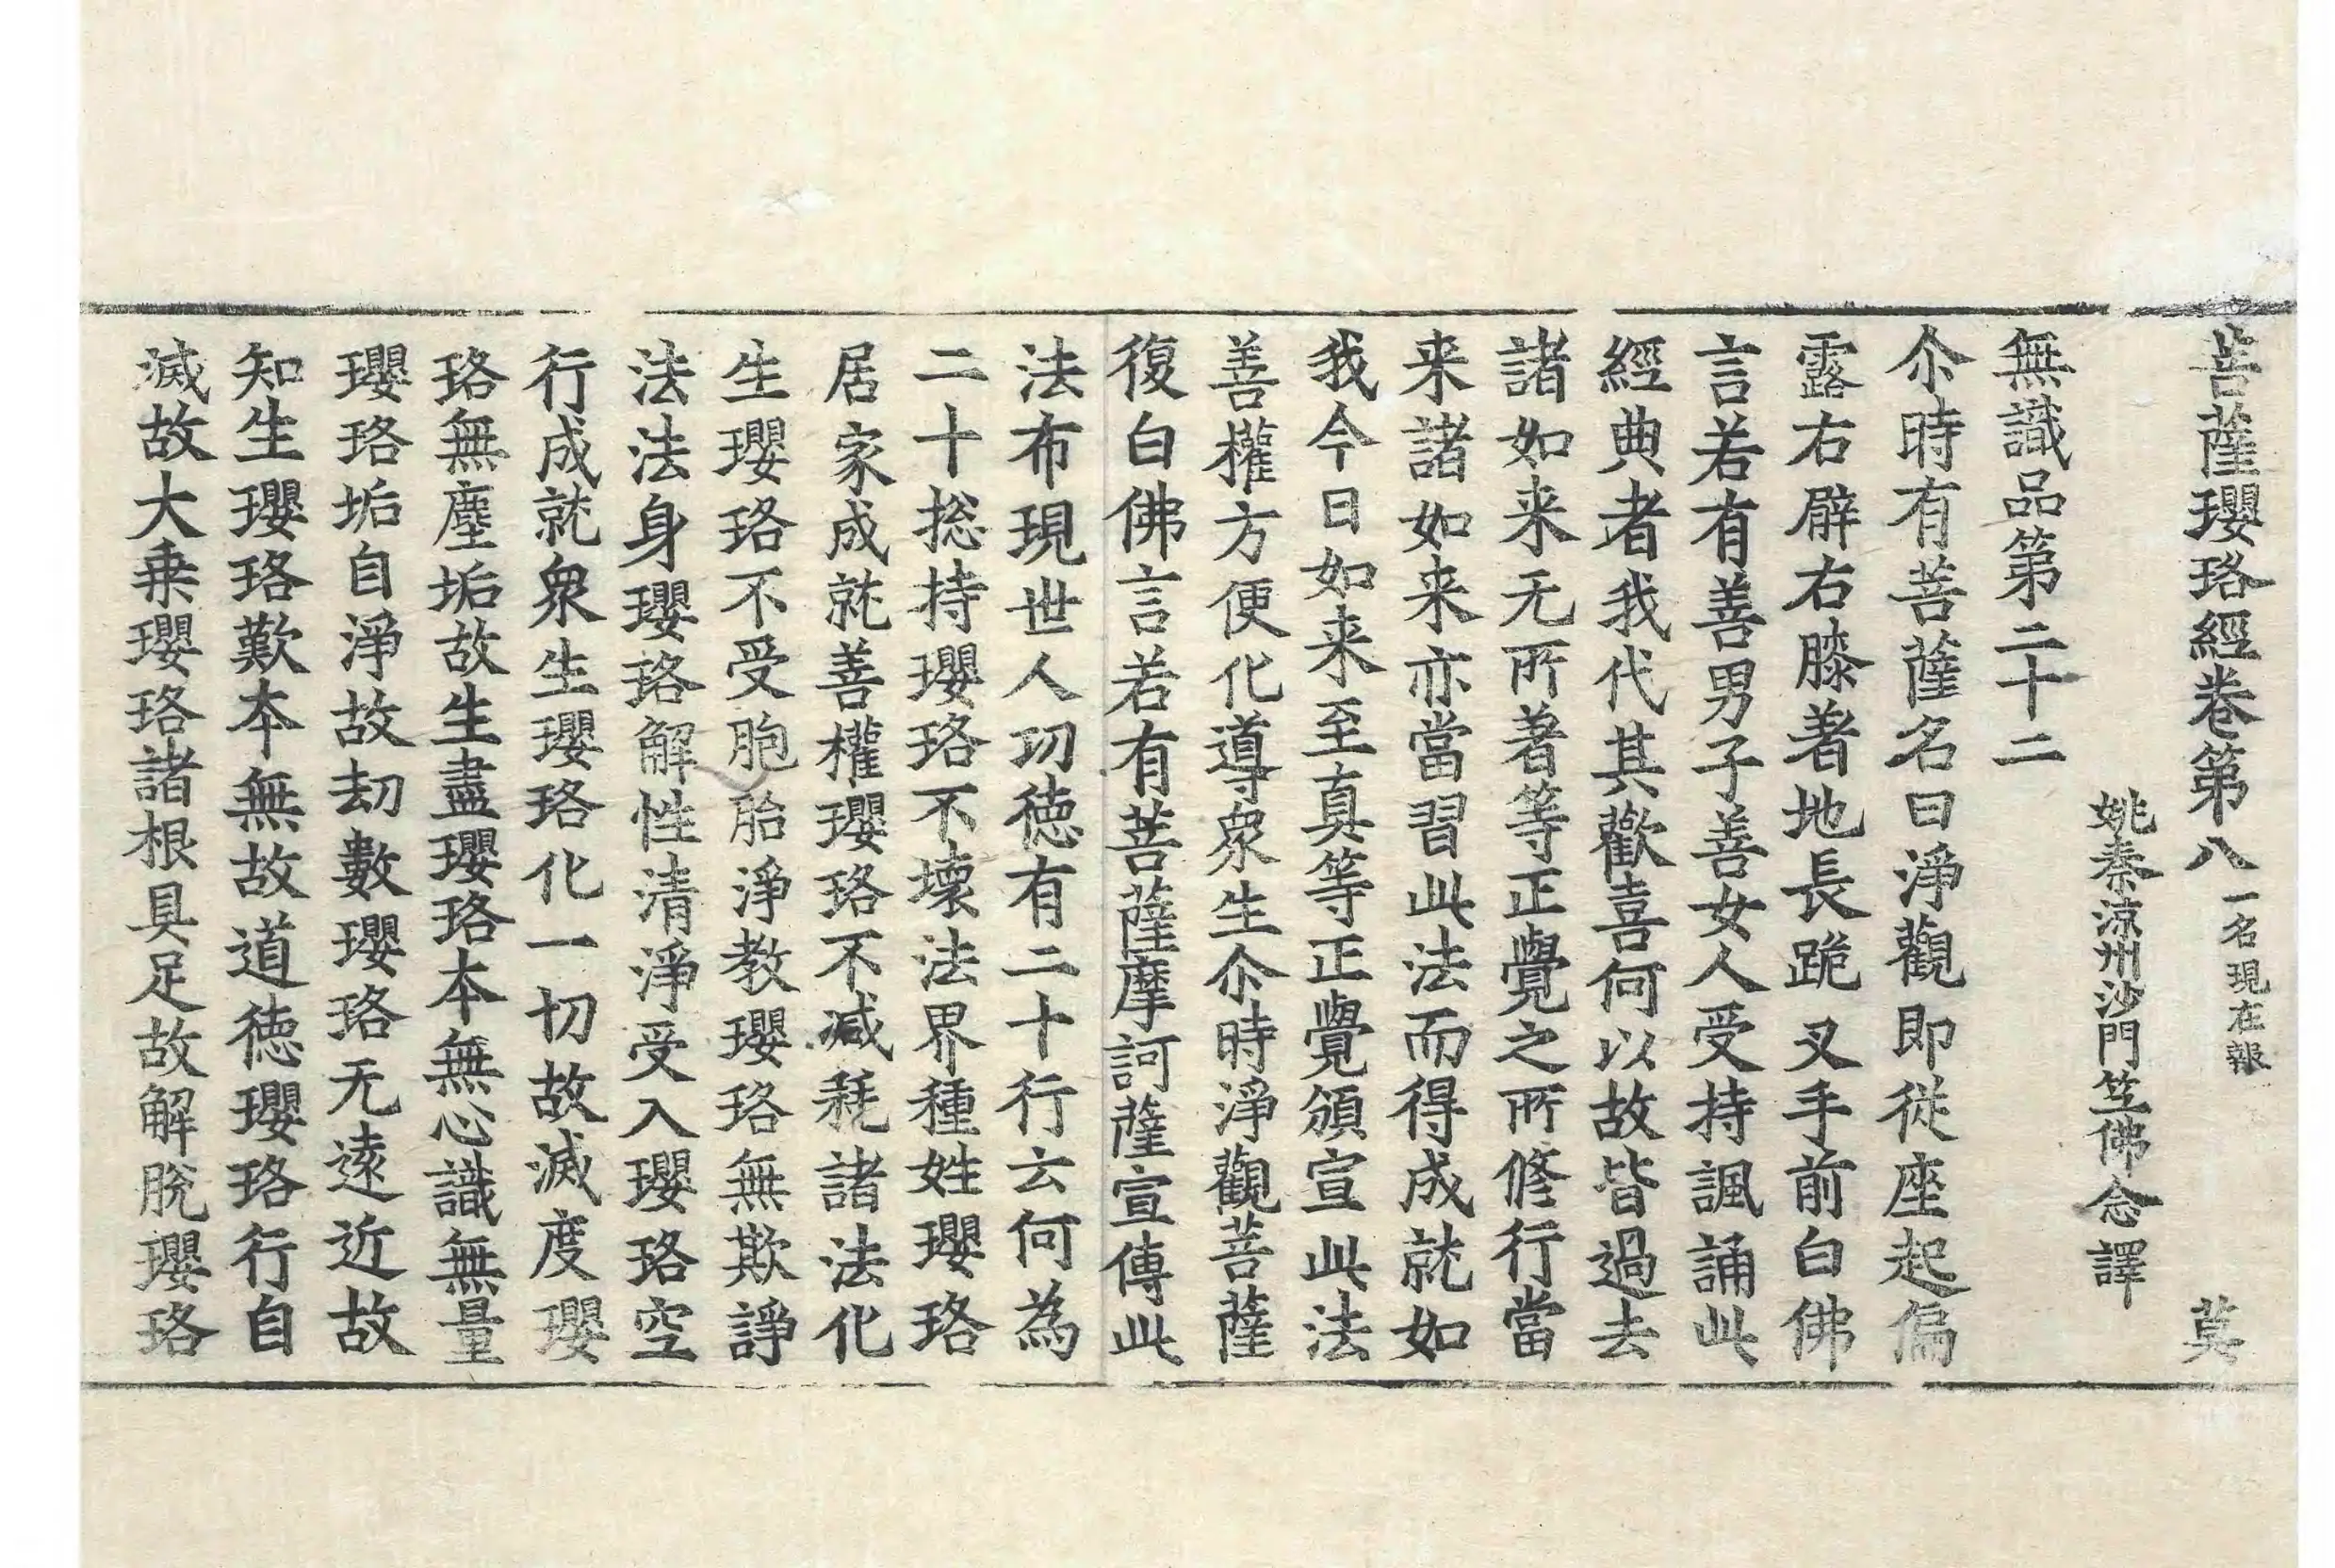 菩薩瓔珞經卷第八 一名現在報 莫
姚秦涼州沙門笁佛念譯
無識品第二十二
尒時有菩薩名曰淨觀即從座起偏
露右臂右膝著地長跪叉手前白佛
言若有善男子善女人受持諷誦此
經典者我代其歡喜何以故皆過去
諸如来无所著等正覺之所修行當
来諸如来亦當習此法而得成就如
我今日如来至真等正覺頒宣此法
善權方便化導眾生尒時淨觀菩薩
復白佛言若有菩薩摩訶薩宣傳此
法布現世人功徳有二十行云何為
二十捴持瓔珞不壞法界種姓瓔珞
居家成就善權瓔珞不減耗諸法化
生瓔珞不受胞胎淨教瓔珞無欺諍
法法身瓔珞解性清淨受入瓔珞空
行成就衆生瓔珞化一切故滅度瓔
珞無塵垢故生盡瓔珞本無心識無量
瓔珞垢自淨故刼數瓔珞无遠近故
知生瓔珞歎本無故道徳瓔珞行自
滅故大乗瓔珞諸根具足故解脫瓔珞